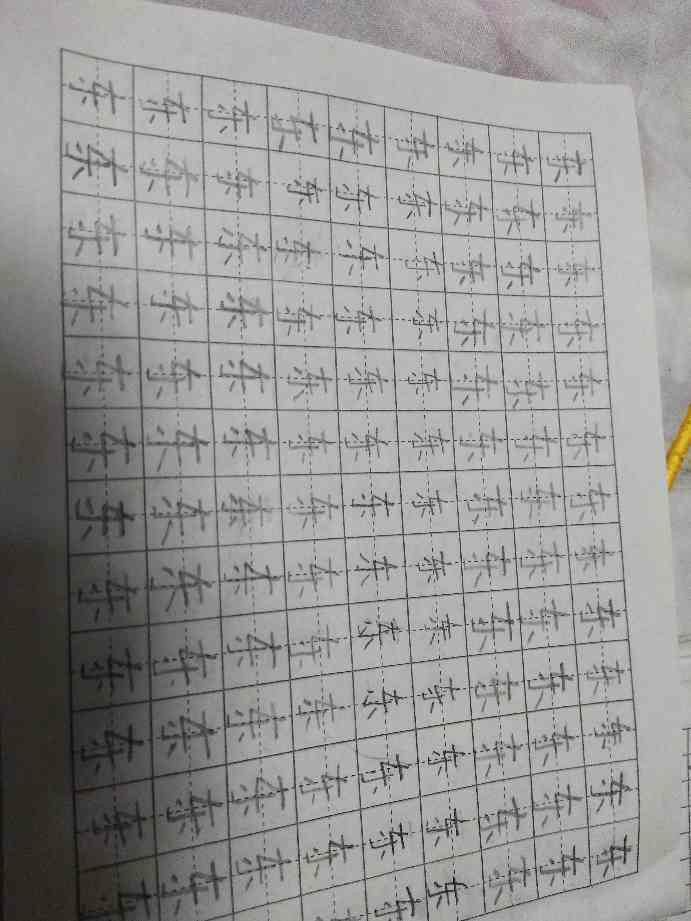 东东东东东东东东东东东东东
东东东东东东东东东东东东东
东东东东东东东东东东东东东
东东东东东东东东东东东东东
东东东东东东东东东东东东东
东东东东东东东东东东东东东
东东东东东东东东东东东东
东东东东东东东东东东东东
东东东东东东东东东东东东